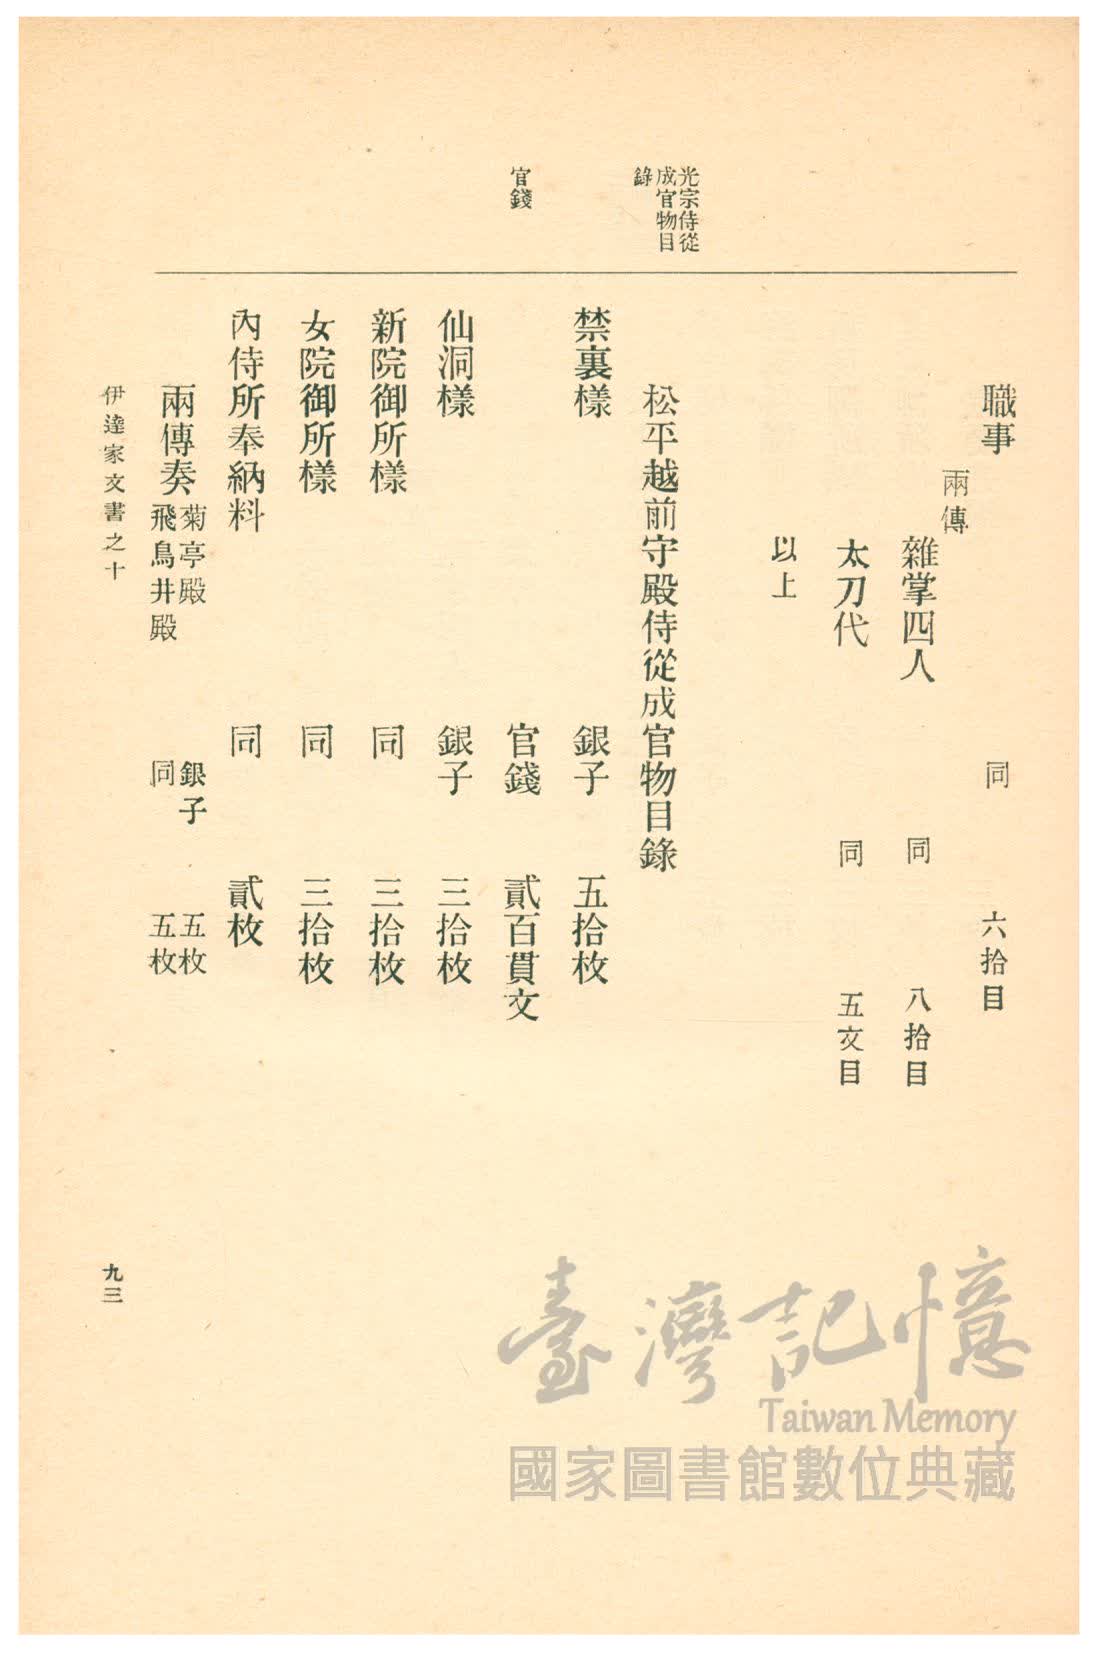 光宗侍從
成官物目
錄
官錢
職事 同 六拾目
兩傳
雜掌四人 同 八拾目
太刀代 同 五文目
以上
松平越前守殿侍從成官物目錄
禁裏樣 銀子 五拾枚
官錢 貳百貫文
仙洞樣 銀子 三拾枚
新院御所樣 同 三拾枚
女院御所樣 同 三拾枚
內侍所奉納料 同 貳枚
兩傳奏 菊亭殿 銀子 五枚
飛鳥井殿 同 五枚
伊達家文書之十
九三
臺灣記憶
Taiwan Memory
國家圖書館數位典藏